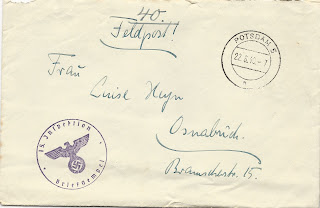 40.
Feldpost!
POTSDAM 5
Frau
Luise Heyn
Osnabrück.
Bramschestr. 15.
Inspektion
Briefstempel